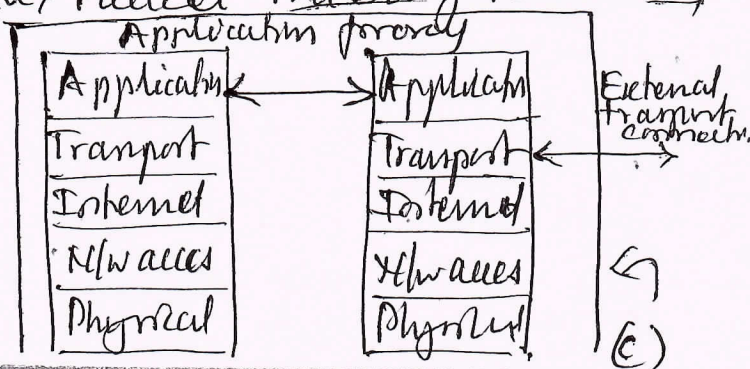 Application proxy
Application
Transport
Internet
N/w access
Physical
Application
Transport
Internet
N/w access
Physical
External
transport
connectn.
(c)